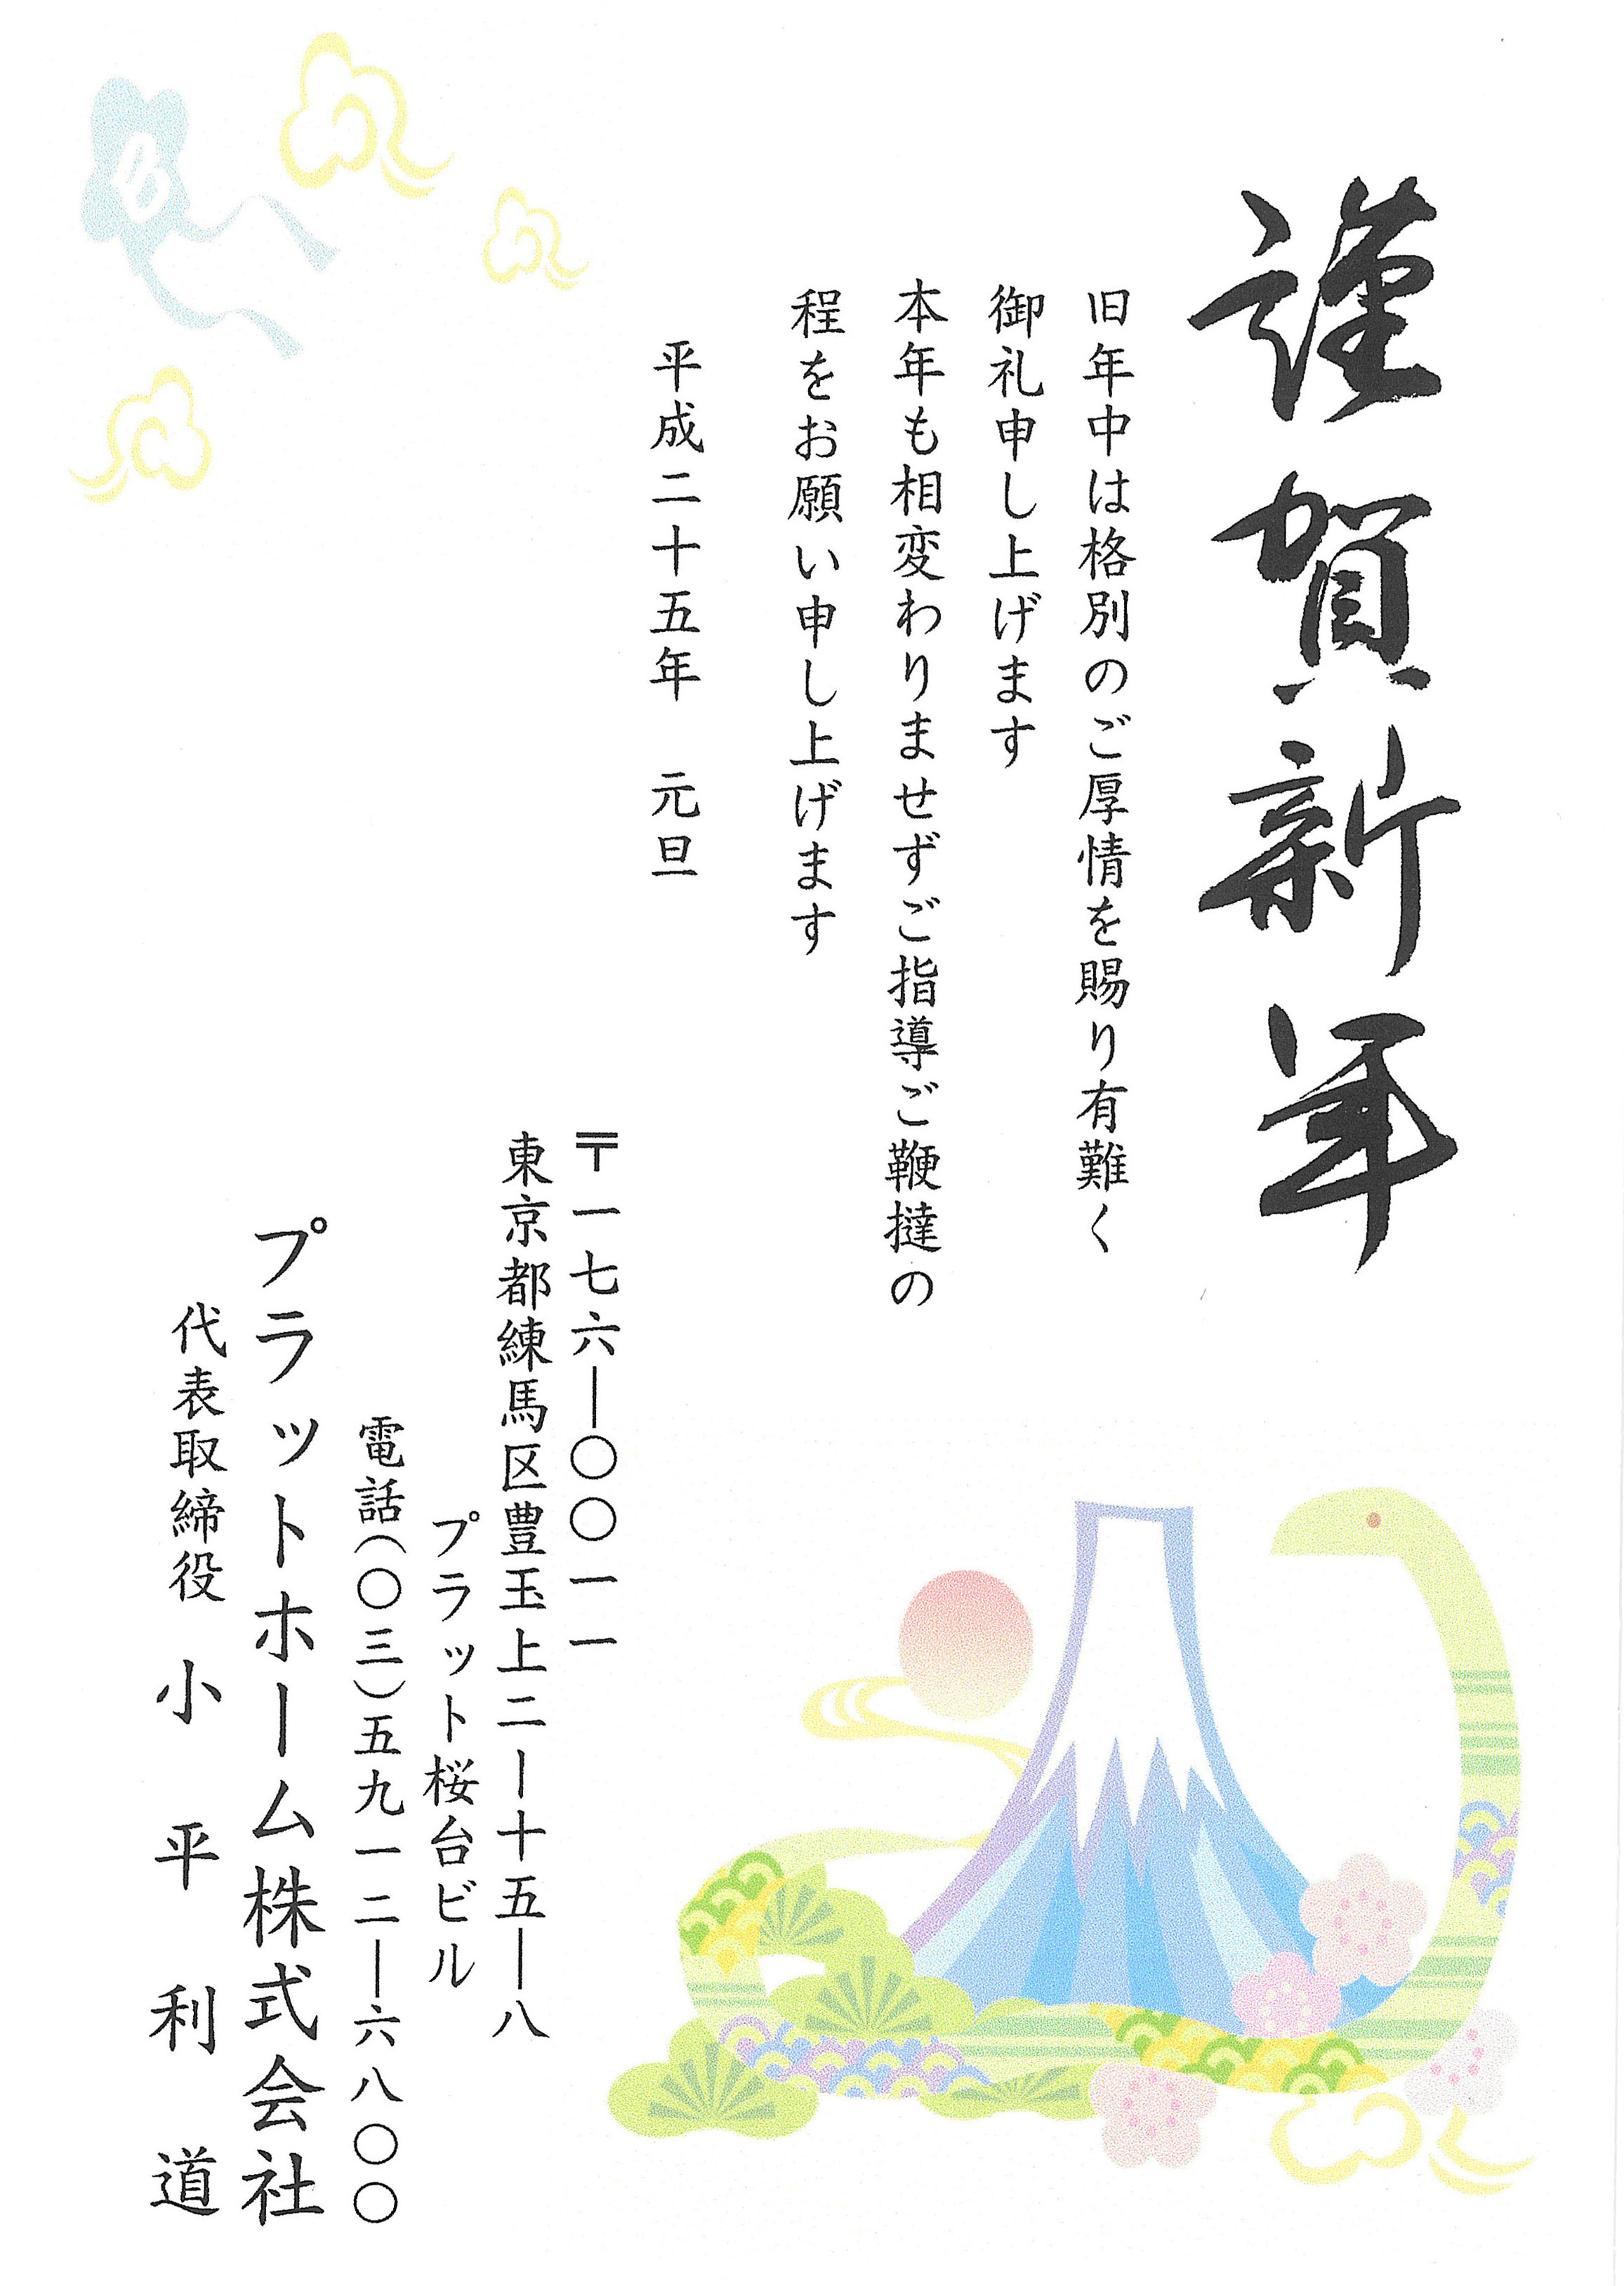 謹賀新年
旧年中は格別のご厚情を賜り有難く
御礼申し上げます
本年も相変わりませずご指導ご鞭撻の
程をお願い申し上げます
平成二十五年　元旦
〒一七六―〇〇一一
東京都練馬区豊玉上二―十五―八
プラット桜台ビル
電話(〇三)五九一二―六八〇〇
プラットホーム株式会社
代表取締役　小平利道